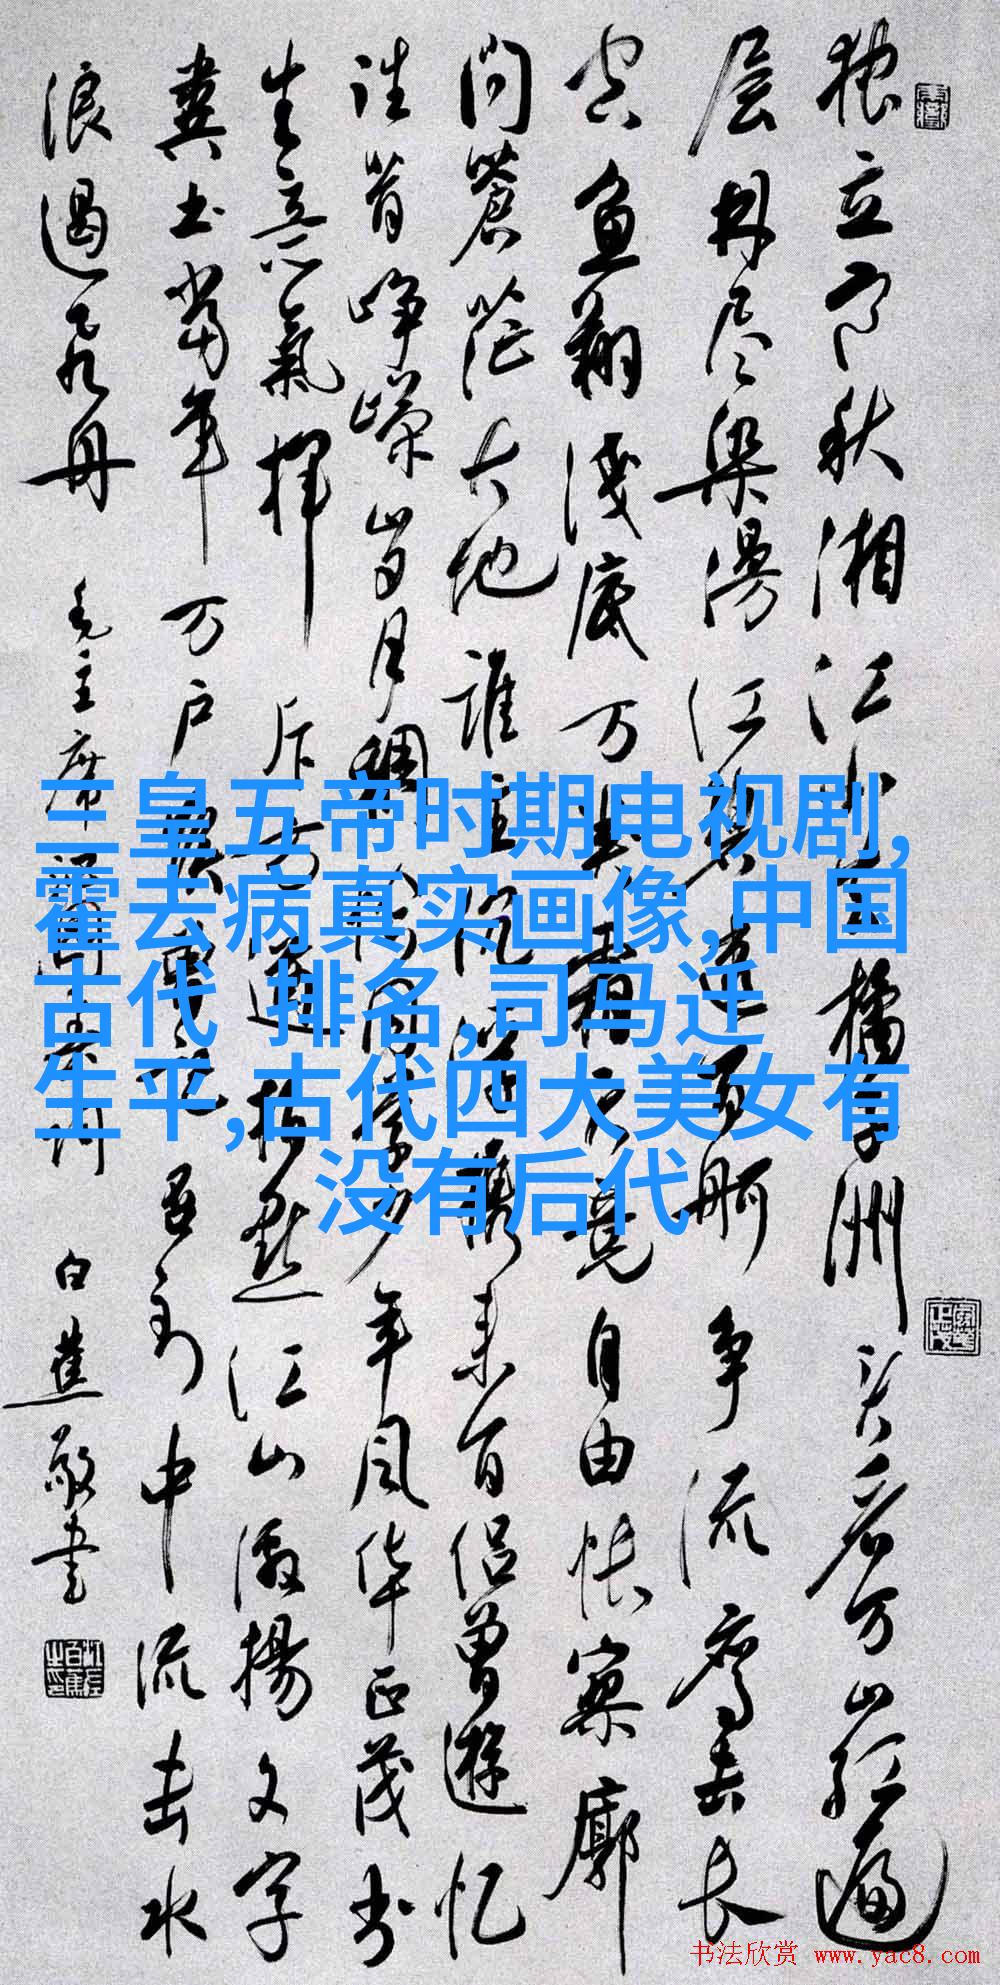 三皇五帝时期电视剧,
霍去病真实画像,中国
古代 排名,司马迁
生平,古代四大美女有
没有后代
独立寒秋湘江北去橘子洲头看万山红遍
层林尽染漫江碧透百舸争流鹰击长
空鱼翔浅底万类霜天竞自由怅寥廓
问蒼茫大地誰主沉浮携来百侣曾遊忆
往昔峥嵘岁月稠恰同学少年风华正茂书
生意氣揮斥方遒指点江山激揚文字
粪土当年万户侯曾记否到中流击水
浪遏飞舟 毛主席词 白蕉敬書
书法欣赏 www.yac8.com